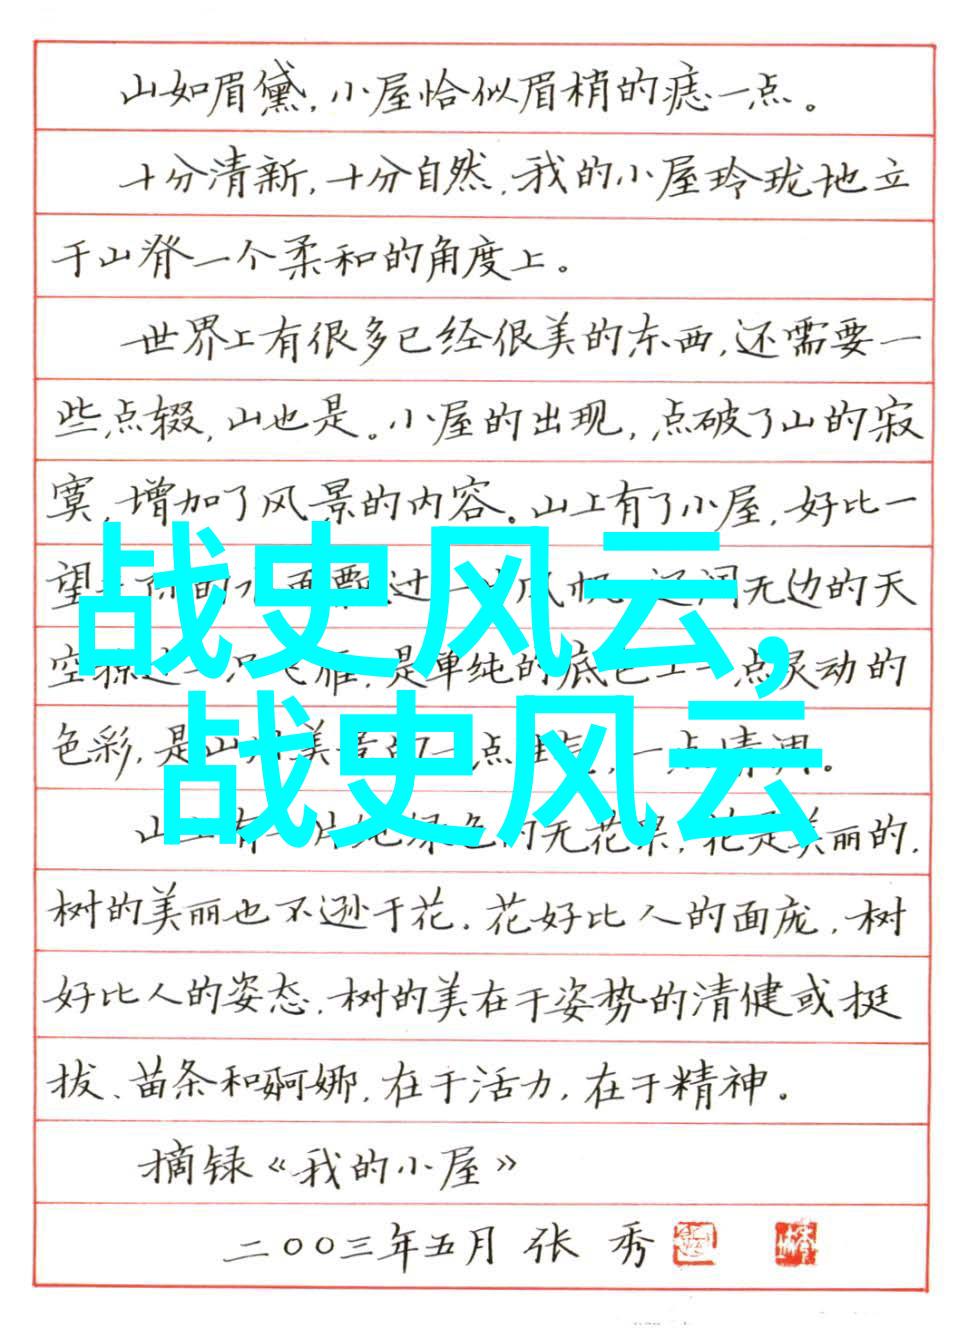 山如眉黛,小屋恰似眉梢的痣一点。
十分清新,十分自然,我的小屋玲珑地立
于山脊一个柔和的角度上。
世界上有很多已经很美的东西,还需要一
些点缀,山也是。小屋的出现,点破了山的寂
寞,增加了风景的内容。山上有了小屋,好比一
望 过 无边的天
战史风云,
空 是单纯的底色上一点灵动的
色彩,是山 美 的一点 ,一点情调。
战史风云
山 有一片 色的无花果,花是美丽的,
树的美丽也不逊于花。花好比人的面庞,树
好比人的姿态。树的美在于姿势的清健或挺
拔、苗条和婀娜,在于活力,在于精神。
摘録《我的小屋》
二〇〇三年五月 张 秀